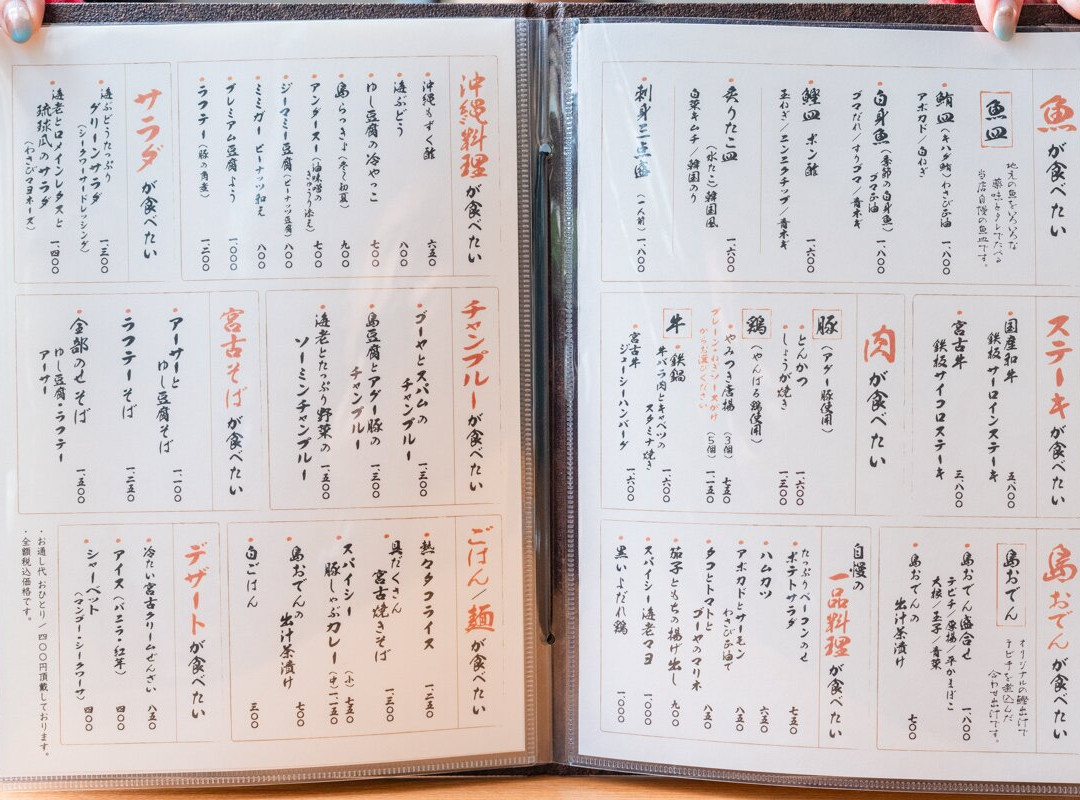 魚が食べたい
魚皿
地元の魚をいろいろな
薬味とタレでたべる
当店自慢の魚皿です。
鮪皿(キハダ鮪)わさびごま油
アボカド/白ねぎ 一、八〇〇
白身魚(季節の白身魚)ゴマ油
ゴマだれ/すりゴマ/青ネギ 一、八〇〇
鰹皿 ポン酢
玉ねぎ/ニンニクチップ/青ネギ 一、六〇〇
炙りたこ皿(水たこ)韓国風
白菜キムチ/韓国のり 一、六〇〇
刺身三点盛(一人前) 一、八〇〇
ステーキが食べたい
国産和牛
鉄板サーロインステーキ 五、八〇〇
宮古牛
鉄板サイコロステーキ 三、八〇〇
肉が食べたい
豚(アグー豚使用)
とんかつ 一、六〇〇
しょうが焼き 一、三〇〇
鶏(やんばる鶏使用)
やみつき唐揚(3個) 七五〇
(5個) 一、一五〇
プレーン・ねぎソースがけ
からお選びください
牛
鉄鍋
牛バラ肉とキャベツの
スタミナ焼き 一、六〇〇
宮古牛
ジューシーハンバーグ 一、六〇〇
島おでんが食べたい
島おでん
オリジナルの鰹出汁で
テビチを煮込んだ
合わせ出汁です。
島おでん盛合せ
テビチ/厚揚/平かまぼこ
大根/玉子/青菜 一、八〇〇
島おでんの
出汁茶漬け 七〇〇
自慢の
一品料理が食べたい
たっぷりベーコンのせ
ポテトサラダ 七五〇
ハムカツ 六五〇
アボカドとサーモン
わさびごま油で 八五〇
タコとトマトと
ゴーヤのマリネ 八五〇
茄子ともちの揚げ出し 九〇〇
スパイシー海老マヨ 一、〇〇〇
黒いよだれ鶏 一、〇〇〇
沖縄料理が食べたい
沖縄もずく酢 六五〇
海ぶどう 八〇〇
ゆし豆腐の冷やっこ 七〇〇
島らっきょ(冬〜初夏) 九〇〇
アンダースー(油味噌のきゅうり添え) 七〇〇
ジーマミー豆腐(ピーナッツ豆腐) 八〇〇
ミミガー ピーナッツ和え 八〇〇
プレミアム豆腐よう 一、〇〇〇
ラフテー(豚の角煮) 一、二〇〇
サラダが食べたい
海ぶどうたっぷり
グリーンサラダ
(シークワーサードレッシング) 一、三〇〇
海老とロメインレタスと
琉球瓜のサラダ
(わさびマヨネーズ) 一、四〇〇
チャンプルーが食べたい
ゴーヤとスパムの
チャンプルー 一、三〇〇
島豆腐とアグー豚の
チャンプルー 一、三〇〇
海老とたっぷり野菜の
ソーミンチャンプルー 一、五〇〇
宮古そばが食べたい
アーサーと
ゆし豆腐そば 一、一〇〇
ラフテーそば 一、二五〇
全部のせそば
ゆし豆腐・ラフテー
アーサー 一、五〇〇
ごはん/麺が食べたい
熱々タコライス 一、二五〇
具だくさん
宮古焼きそば 一、三〇〇
スパイシー
豚しゃぶカレー (小)七五〇
(中)一、一五〇
島おでんの
出汁茶漬け 七〇〇
白ごはん 三〇〇
デザートが食べたい
冷たい宮古クリームぜんざい 八五〇
アイス(バニラ・紅芋) 四〇〇
シャーベット
(マンゴー・シークワーサ) 四〇〇
・お通し代、おひとり/四〇〇円頂戴しております。
・全額税込価格です。